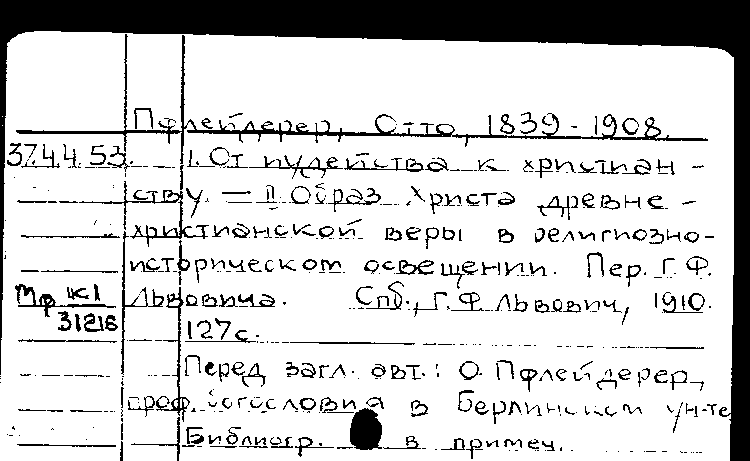 Пфлейдерер, Отто, 1839-1908.
37.4.4.53. I. От иудейства к христиан-
ству. — II Образ Христа древне-
христианской веры в религиозно-
историческом освещении. Пер. Г.Ф.
Львовича. Спб., Г.Ф. Львович, 1910.
Мф К1
31216
127с.
Перед загл. авт.: О. Пфлейдерер,
проф. богословия в Берлинском ун-те
Библиогр. в примеч.